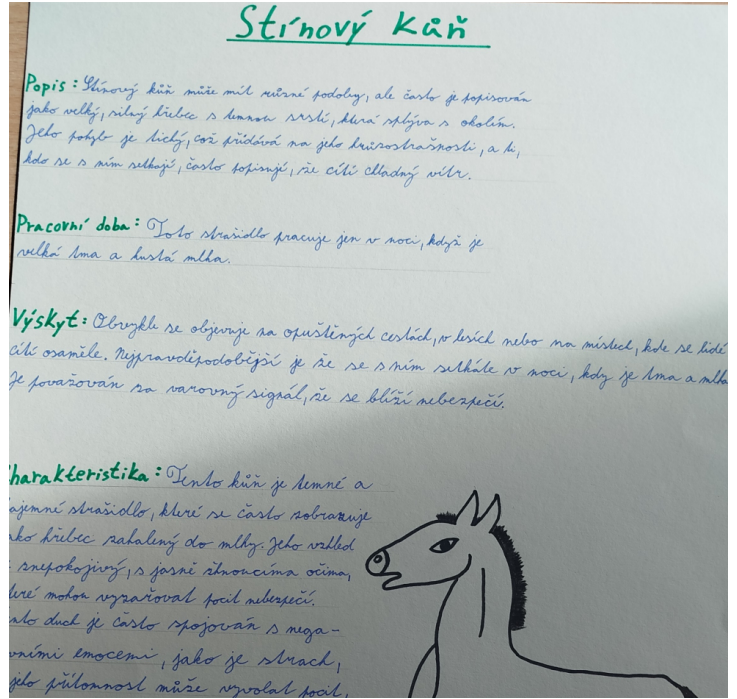 Stínový kůň
Popis: Stínový kůň může mít různé podoby, ale často je popisován
jako velký, silný hřebec s temnou srstí, která splývá s okolím.
Jeho pohyb je tichý, což přidává na jeho hrůzostrašnosti, a ti,
kdo se s ním setkají, často popisují, že cítí chladný vítr.
Pracovní doba: Toto strašidlo pracuje jen v noci, když je
velká tma a hustá mlha.
Výskyt: Obvykle se objevuje na opuštěných cestách, v lesích nebo na místech, kde se lidé
cítí osaměle. Nejpravděpodobnější je že se s ním setkáte v noci, kdy je tma a mlha
Je považován za varovný signál, že se blíží nebezpečí.
harakteristika: Tento kůň je temné a
ajemné strašidlo, které se často zobrazuje
ako hřebec zahalený do mlhy. Jeho vzhled
znepokojivý, s jasně žhnoucíma očima,
teré mohou vyzařovat pocit nebezpečí.
nto duch je často spojován s nega-
vními emocemi, jako je strach,
jeho přítomnost může vyvolat pocit,